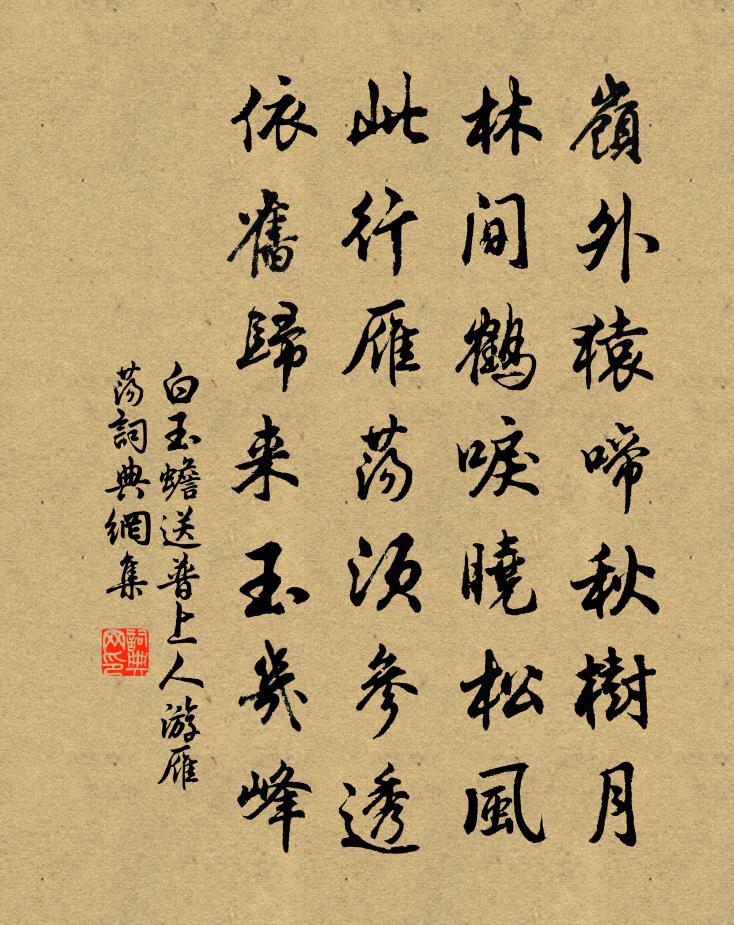 嶺外猿啼秋樹月
林間鶴唳曉松風
此行雁蕩須參透
依舊歸来玉几峰
白玉蟾送普上人游雁
蕩詞典網集
詞典
网印